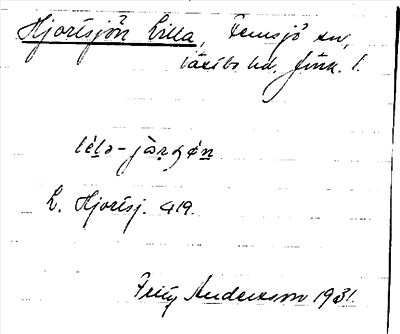 Hjortsjön Lilla, Femsjö sn,
Västbo hd. Jönk. l.
lı́lа-jàrȝǿn
L. Hjortsj. 419.
Fritz Andersson 1931.